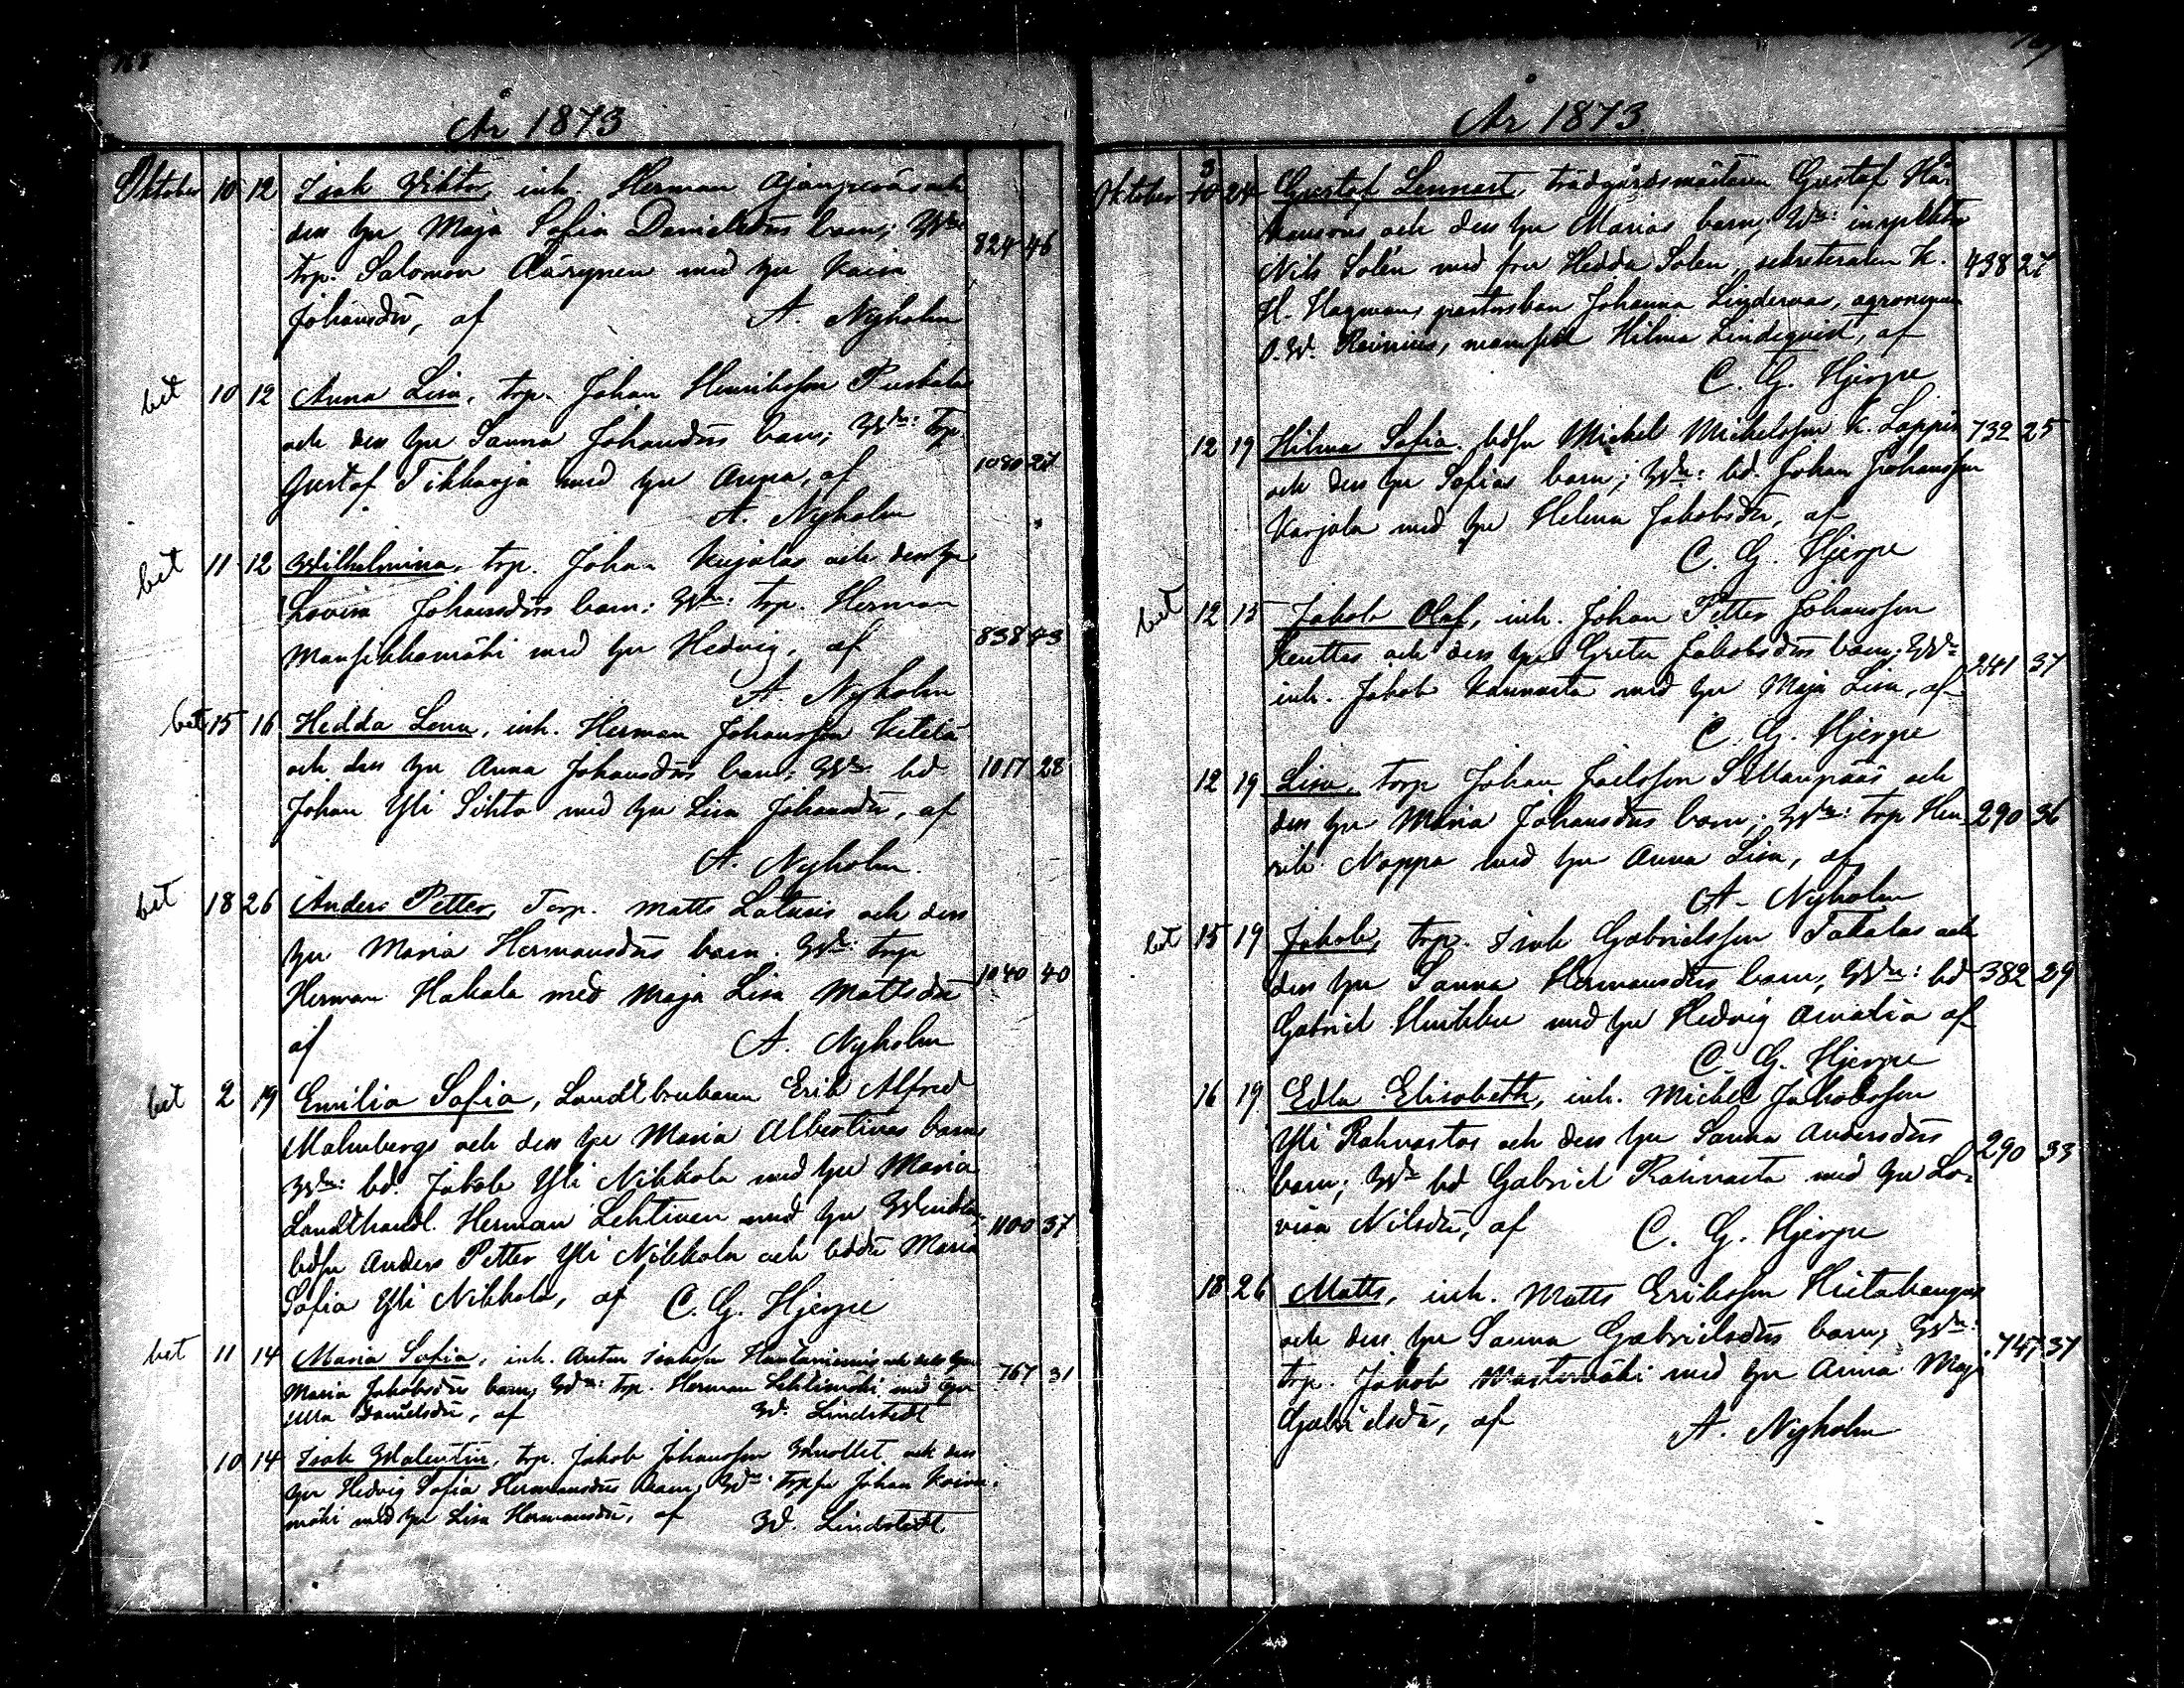 168
År 1873
Oktober 10 12 Isak Viktor, inh. Herman Ajanpääs och
den hu Maja Sofia Danielsdrs barn; Wdn:
trp. Salomon Äärynen med hu Kaisa 824 46
Johansdr, af A. Nyholm
bet 10 12 Anna Lisa, trp. Johan Henriksson Puskala
och den hu Sanna Johansdrs barn; Wdn: trp.
Gustaf Tikkaoja med hu Anna, af 1080 27
A. Nyholm
bet 11 12 Wilhelmina, trp. Johan Kujalas och dess hu
Lovisa Johansdrs barn: Wdn: trp. Herman
Mansikkamäki med hu Hedvig, af 838 43
A. Nyholm
bet 15 16 Hedda Lena, inh. Herman Johansson Ketelä
och den hu Anna Johansdrs barn; Wdn: bd 1017 28
Johan Yli Sihto med hu Lisa Johansdr, af
A. Nyholm.
bet 18 26 Anders Petter, Torp. Matts och dess
hu Maria Hermansdrs barn. Wdn: trp
Herman Hakala med Maja Lisa Mattsdr 1040 40
af A. Nyholm
bet 2 19 Emilia Sofia, Landtbrukaren Erik Alfred
Malmbergs och den hu Maria Albertinas barn
Wdn: bd. Jakob Yli Nikkola med hu Maria
Landthandl. Herman Lehtinen med hu 1100 37
bdsn Anders Petter Yli Nikkola och bddr Maria
Sofia Yli Nikkola, af C. G. Hjerpe
bet 11 14 Maria Sofia, inh. Anton Isaksson och dess hu
Maria Jakobsdrs barn, Wdn: trp. Herman Lehtimäki med hu 767 31
Ulla Danielsdr, af W. Lindstedt
10 14 Isak Walentin, trp. Jakob Johansson och dess
hu Hedvig Sofia Hermansdrs barn; Wdn: trpsn Johan Koivu-
mäki med hu Lisa Hermansdr, af W. Lindstedt
169
År 1873.
Oktober 3 10 24 Gustaf Lennart, trädgårdsmästaren Gustaf Hå-
kansons och dess hu Marias barn, Wdn: inspektor
Nils Solén med fru Hedda Solén, sekreteraren K. 438 27
H. Hagman, pastorskan Johanna, agronomen
O. W. Reinius, mamsell Hilma Lindequist, af
C. G. Hjerpe
12 19 Hilma Sofia, bdsn Mickel Mickelsson K. Loppis 732 25
och den hu Sofias barn; Wdn: bd. Johan Johansson
Karjala med hu Helena Jakobsdr, af
C. G. Hjerpe
bet 12 15 Jakob Olof, inh. Johan Petter Johansson
Kenttas och den hu Greta Jakobsdrs barn; Wdn: 241 37
inh. Jakob Kannasta med hu Maja Lisa, af
C. G. Hjerpe
12 19 Lisa, torp Johan Joelsson Sillanpääs och
den hu Maria Johansdrs barn; Wdn: torp Hen- 290 36
rik Noppa med hu Anna Lisa, af
A. Nyholm
bet 15 19 Jakob, trp. Isak Gabrielsson Takalas och
den hu Sanna Hermansdrs barn; Wdn: bd 382 29
Gabriel med hu Hedvig Amalia af
C. G. Hjerpe
16 19 Edla Elisabeth, inh. Mickel Jakobsson
Yli Rahnastos och dess hu Sanna Andersdrs
barn; Wdn bd Gabriel Rahnasto med hu Lo- 290 33
visa Nilsdr, af C. G. Hjerpe
18 26 Matts, inh. Matts Eriksson Hietakangas
och dess hu Sanna Gabrielsdrs barn; Wdn:
trp. Jakob Mastomäki med hu Anna Maja 747 37
Gabrielsdr, af A. Nyholm